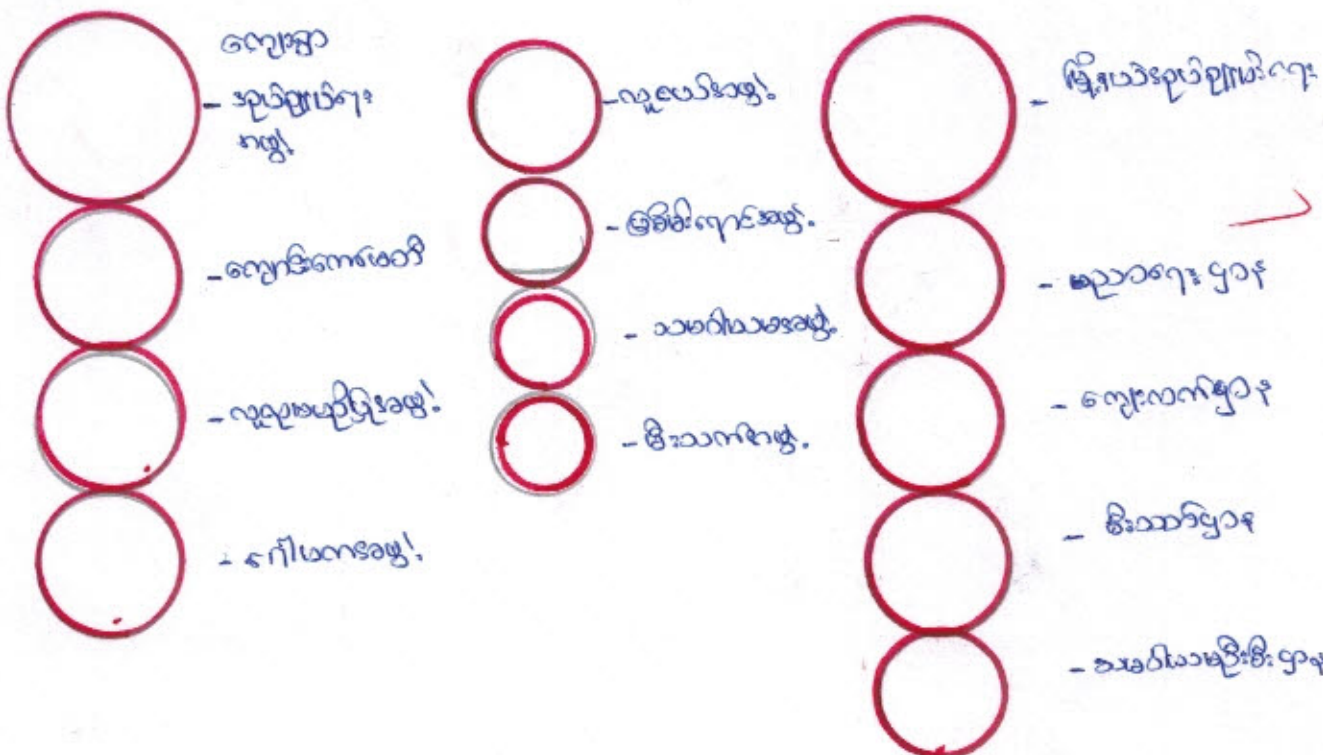 ကျေးရွာ
- အုပ်ချုပ်ရေး
အဖွဲ့
- ကျောင်းကော်မတီ
- လူမှုကူညီမှုအဖွဲ့
- ဂေါပကအဖွဲ့
- လူငယ်အဖွဲ့
- မြစိမ်းရောင်အဖွဲ့
- သမဝါယမအဖွဲ့
- မီးသတ်အဖွဲ့
- မြို့နယ်အုပ်ချုပ်ရေး
- ပညာရေးဌာန
- ကျေးလက်ဌာန
- မီးသတ်ဌာန
- သမဝါယမဦးစီးဌာန